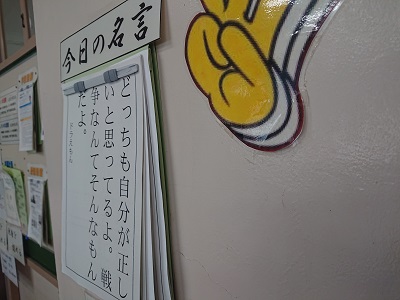 今日の名言
どっちも自分が正し
いと思ってるよ。戦
争なんてそんなもん
だよ。
ドラえもん